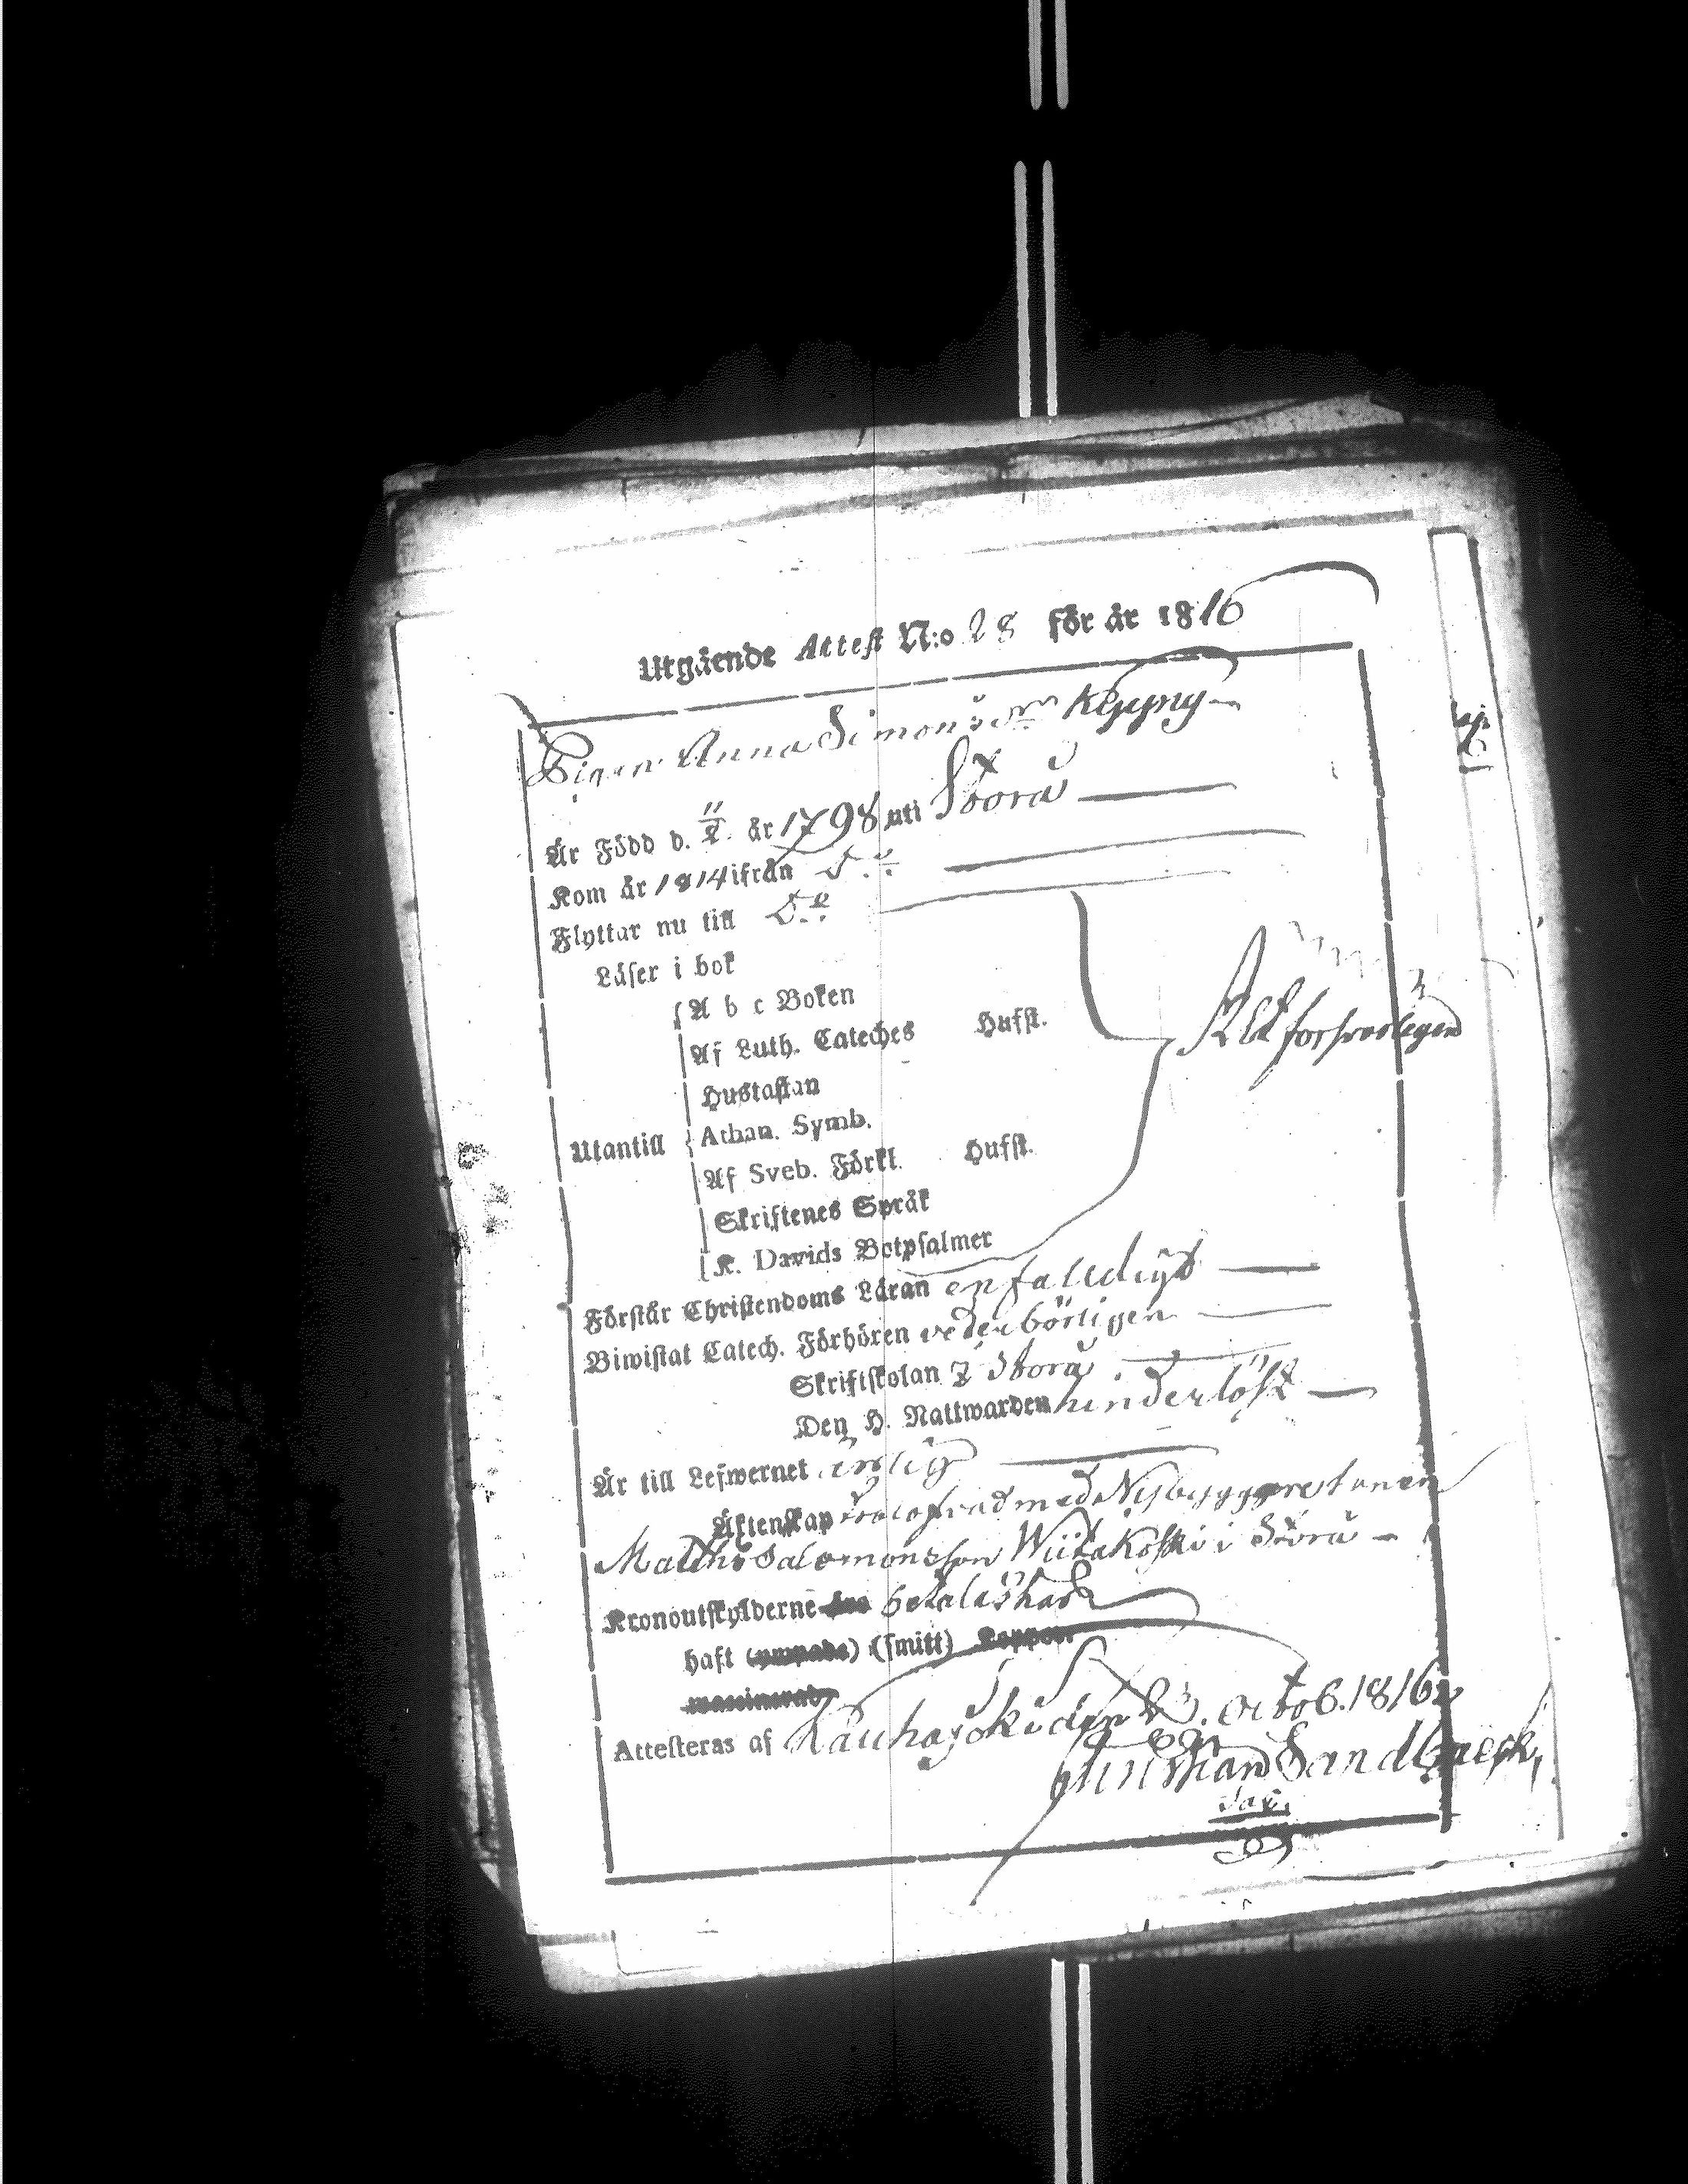 Utgående Attest N:o 28 för år 1816
Pigan Anna Simonsdr Keppny
Är Född d. 11/2 år 1798 uti Storå
Kom år 1814 ifrån Do
Flyttar nu till Do
Läser i bok
A b c Boken
Af Luth. Cateches Hufst.
Rätt försvarligen
Hustaflan
Utantill Athan. Symb.
Af Sveb. Förkl. Hufst.
Skriftenes Språk
K. Davids Botpsalmer
Förstår Christendoms Läran enfalldigt
Biwistat Catech. Förhören vederbörligen
Skriftskolan i Storå
Den H. Nattwarden hinderlöst
Är till Lefwernet ärlig
Äktenskap med Nybyggaresonen
Matths Salomonsson Wiitakoski i Storå
Kronoutskylderne betalt
haft (ympade) (smitt) Koppor
vaccinerad
Attesteras af Kauhajoki den 23. Octob. 1816
Christian Sandbaeck,
Sac.